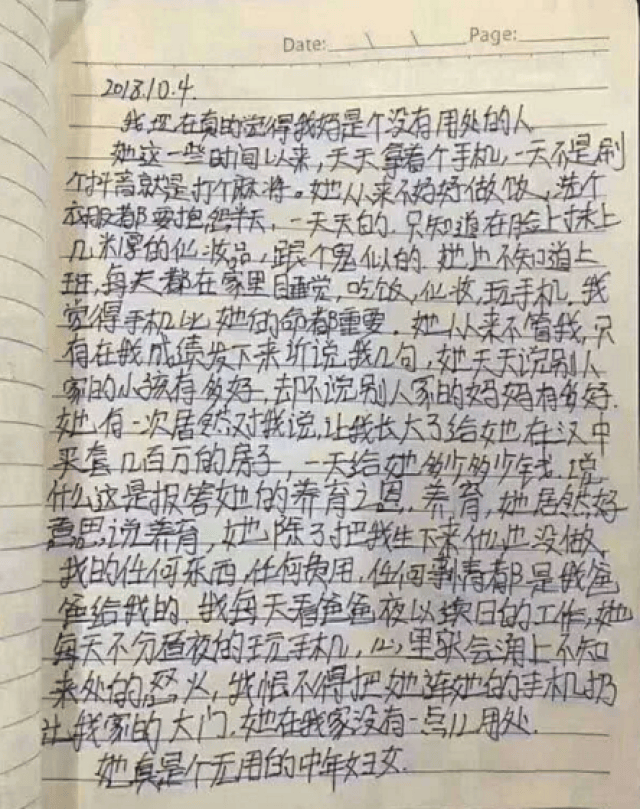 Date: \ \ Page:
2018.10.4.
我现在真的觉得我妈是个没有用处的人
她这一些时间以来,天天拿着个手机,一天不是刷
个抖音就是打个麻将。她从来不好好做饭,洗个
衣服都要抱怨半天,一天天的,只知道在脸上抹上
几米厚的化妆品,跟个鬼似的,她也不知道上
班,每天都在家里睡觉,吃饭,化妆,玩手机,我
觉得手机比她的命都重要。她从来不管我,只
有在我成绩发下来听说我几句,她天天说别人
家的小孩有多好,却不说别人家的妈妈有多好.
她有一次居然对我说,让我长大了给她在汉中
买套几百万的房子,一天给她多少多少钱,说
什么这是报答她的养育之恩,养育,她居然好
意思说养育,她除了把我生下来他也没做,
我的任何东西,任何费用,任何事情都是我爸
爸给我的,我每天看爸爸夜以续日的工作,她
每天不分昼夜的玩手机,心里就会涌上不知
来处的怒火,我恨不得把她连她的手机扔
出我家的大门,她在我家没有一点儿用处.
她真是个无用的中年妇女.